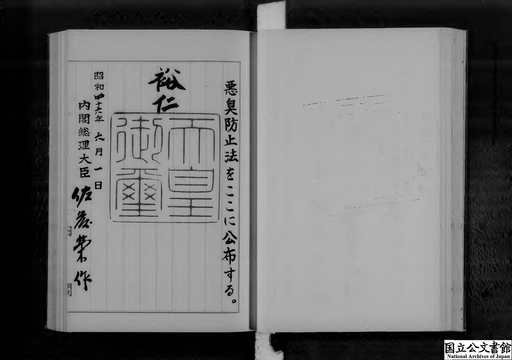 悪臭防止法をここに公布する。
裕仁
天皇
御璽
昭和四十六年六月一日
内閣総理大臣 佐藤榮作
国立公文書館
National Archives of Japan